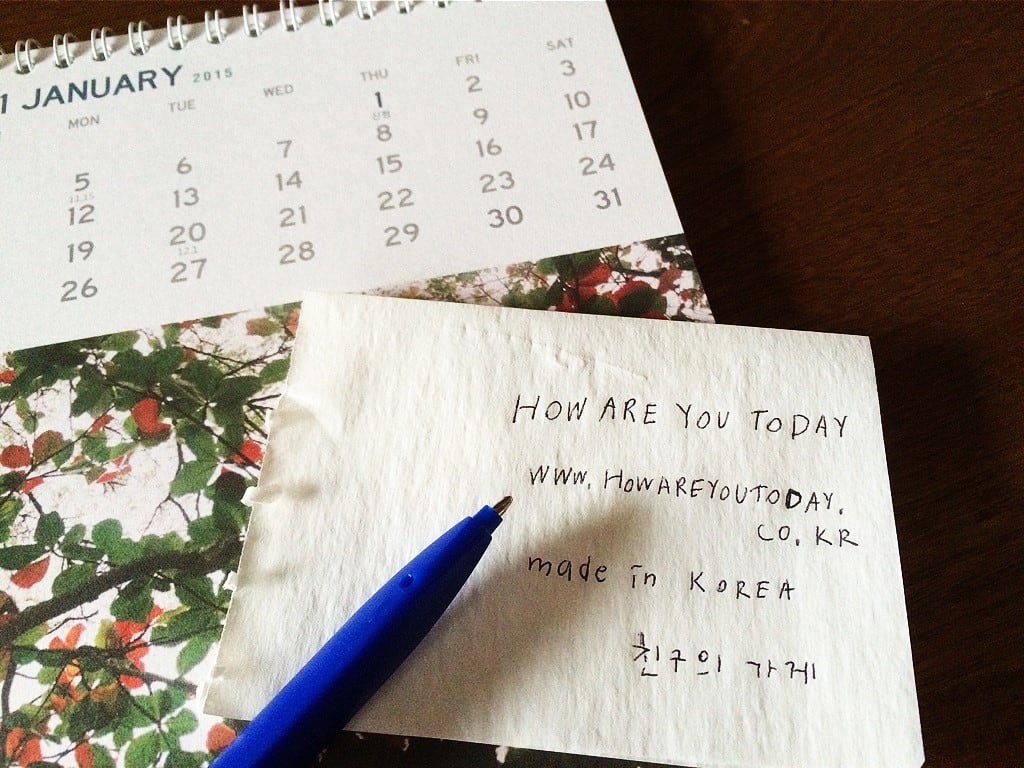 1 JANUARY 2015
MON TUE WED THU FRI SAT
1 2 3
5 6 7 8 9 10
12 13 14 15 16 17
19 20 21 22 23 24
26 27 28 29 30 31
신정
11.15
12.1
HOW ARE YOU TODAY
WWW.HOWAREYOUTODAY.
CO.KR
made in KOREA
친구의 가게